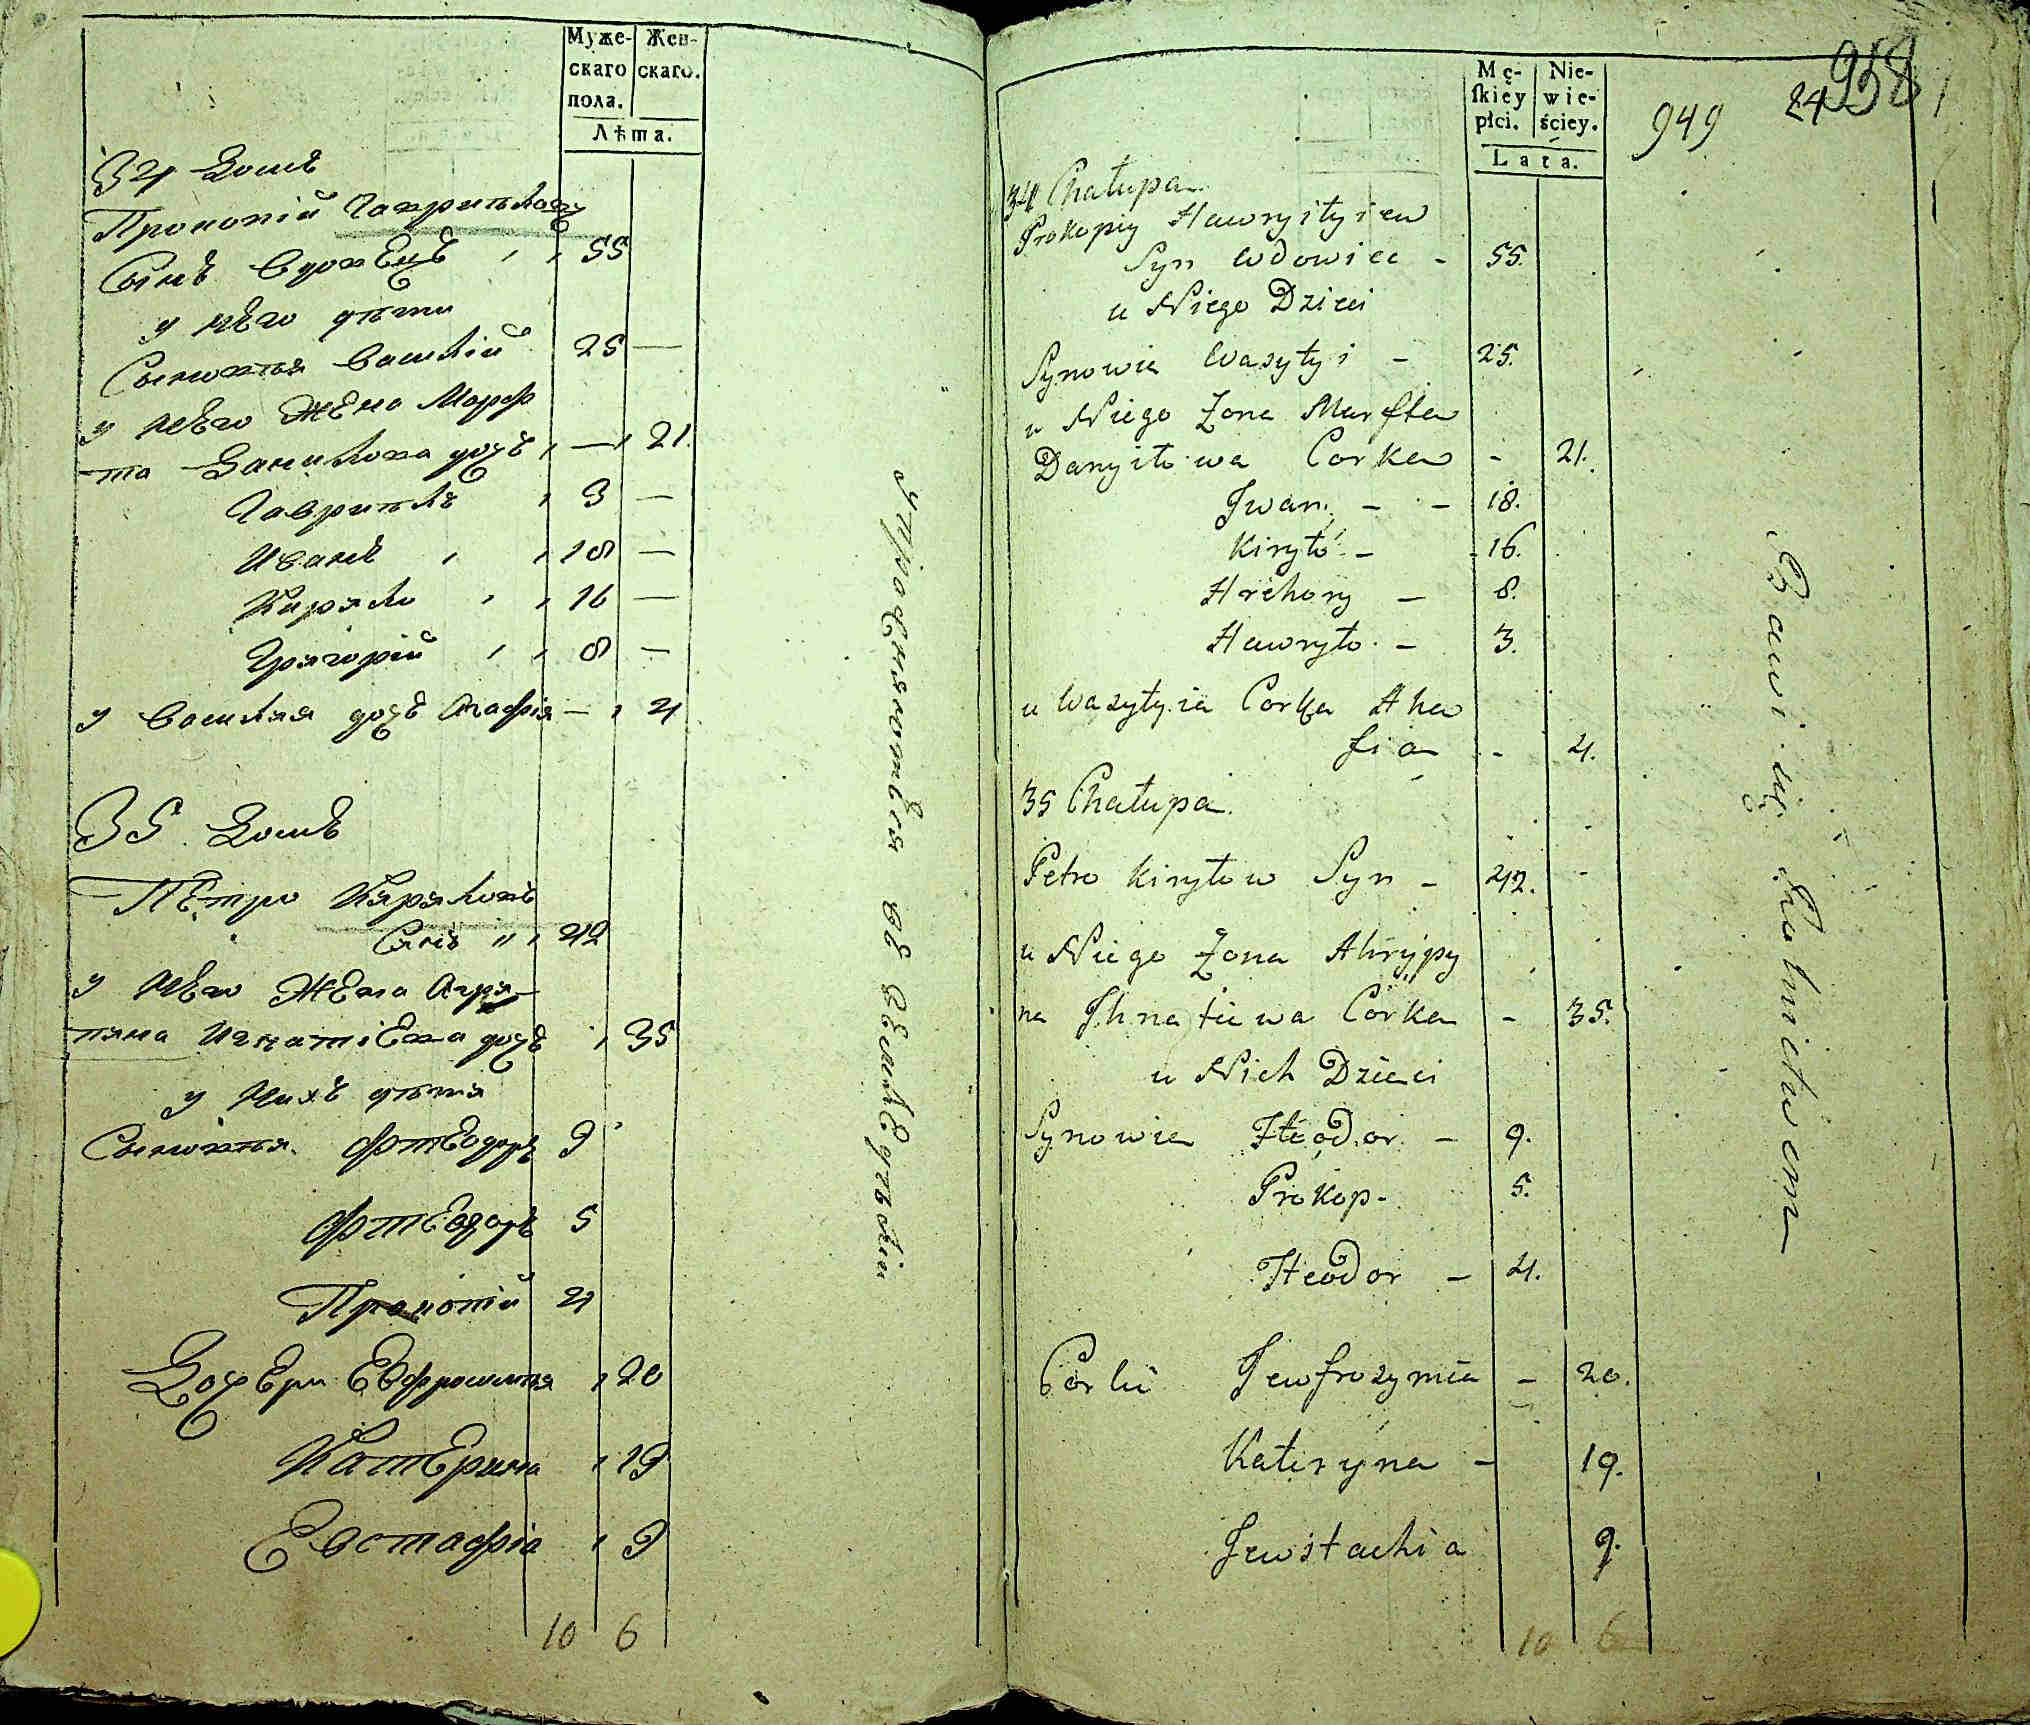 Муже- Жен-
скаго скаго.
пола.
Лѣта.
34 Домъ
Прокопій Гавриловъ
Сынъ вдовецъ 55
у него дѣти
Сыновья Василій 25 —
у него Жена Марф
та Данилова дочь — 21.
Гавриилъ 3 —
Иванъ 18 —
Кирило 16 —
Григорій 8 —
у Василия дочь Агафія — 4
35 Домъ
Петро Кириловъ
Синъ 42
у него Жена Агри-
пина Игнатіева дочъ 35
у нихъ дѣти
Сыновья Фтеодоръ 9
Фтеодоръ 5
Прокопій 4
Дочери Евфросиния 20
Катерина 19
Евстафіа 9
10 6
упражняются въ земледѣліи
Mę- Nie-
skiey wie-
płci. ściey.
Lata.
949 24 958
34 Chałupa
Prokopiy Hawryiłyiew
Syn Wdowiec - 55.
u Niego Dzieci
Synowie Wasyłyi - 25.
u Niego Żona Marfta
Danyiłowa Corka - 21.
Jwan - - 18.
Kiryło - 16.
Hrehory - 8.
Hawryło - 3.
u Wasyłyia Corka Aha
fia - 4.
35 Chałupa
Petro Kiryłow Syn - 42.
u Niego Żona Ahrypy
na Jhnatiewa Corka - 35.
u Nich Dzieci
Synowie Fteodor - 9.
Prokop - 5.
Fteodor - 4.
Corki Jewfrozynia - 20.
Kateryna - 19.
Jewstachia 9.
10 6
Bawi się Rolnictwem